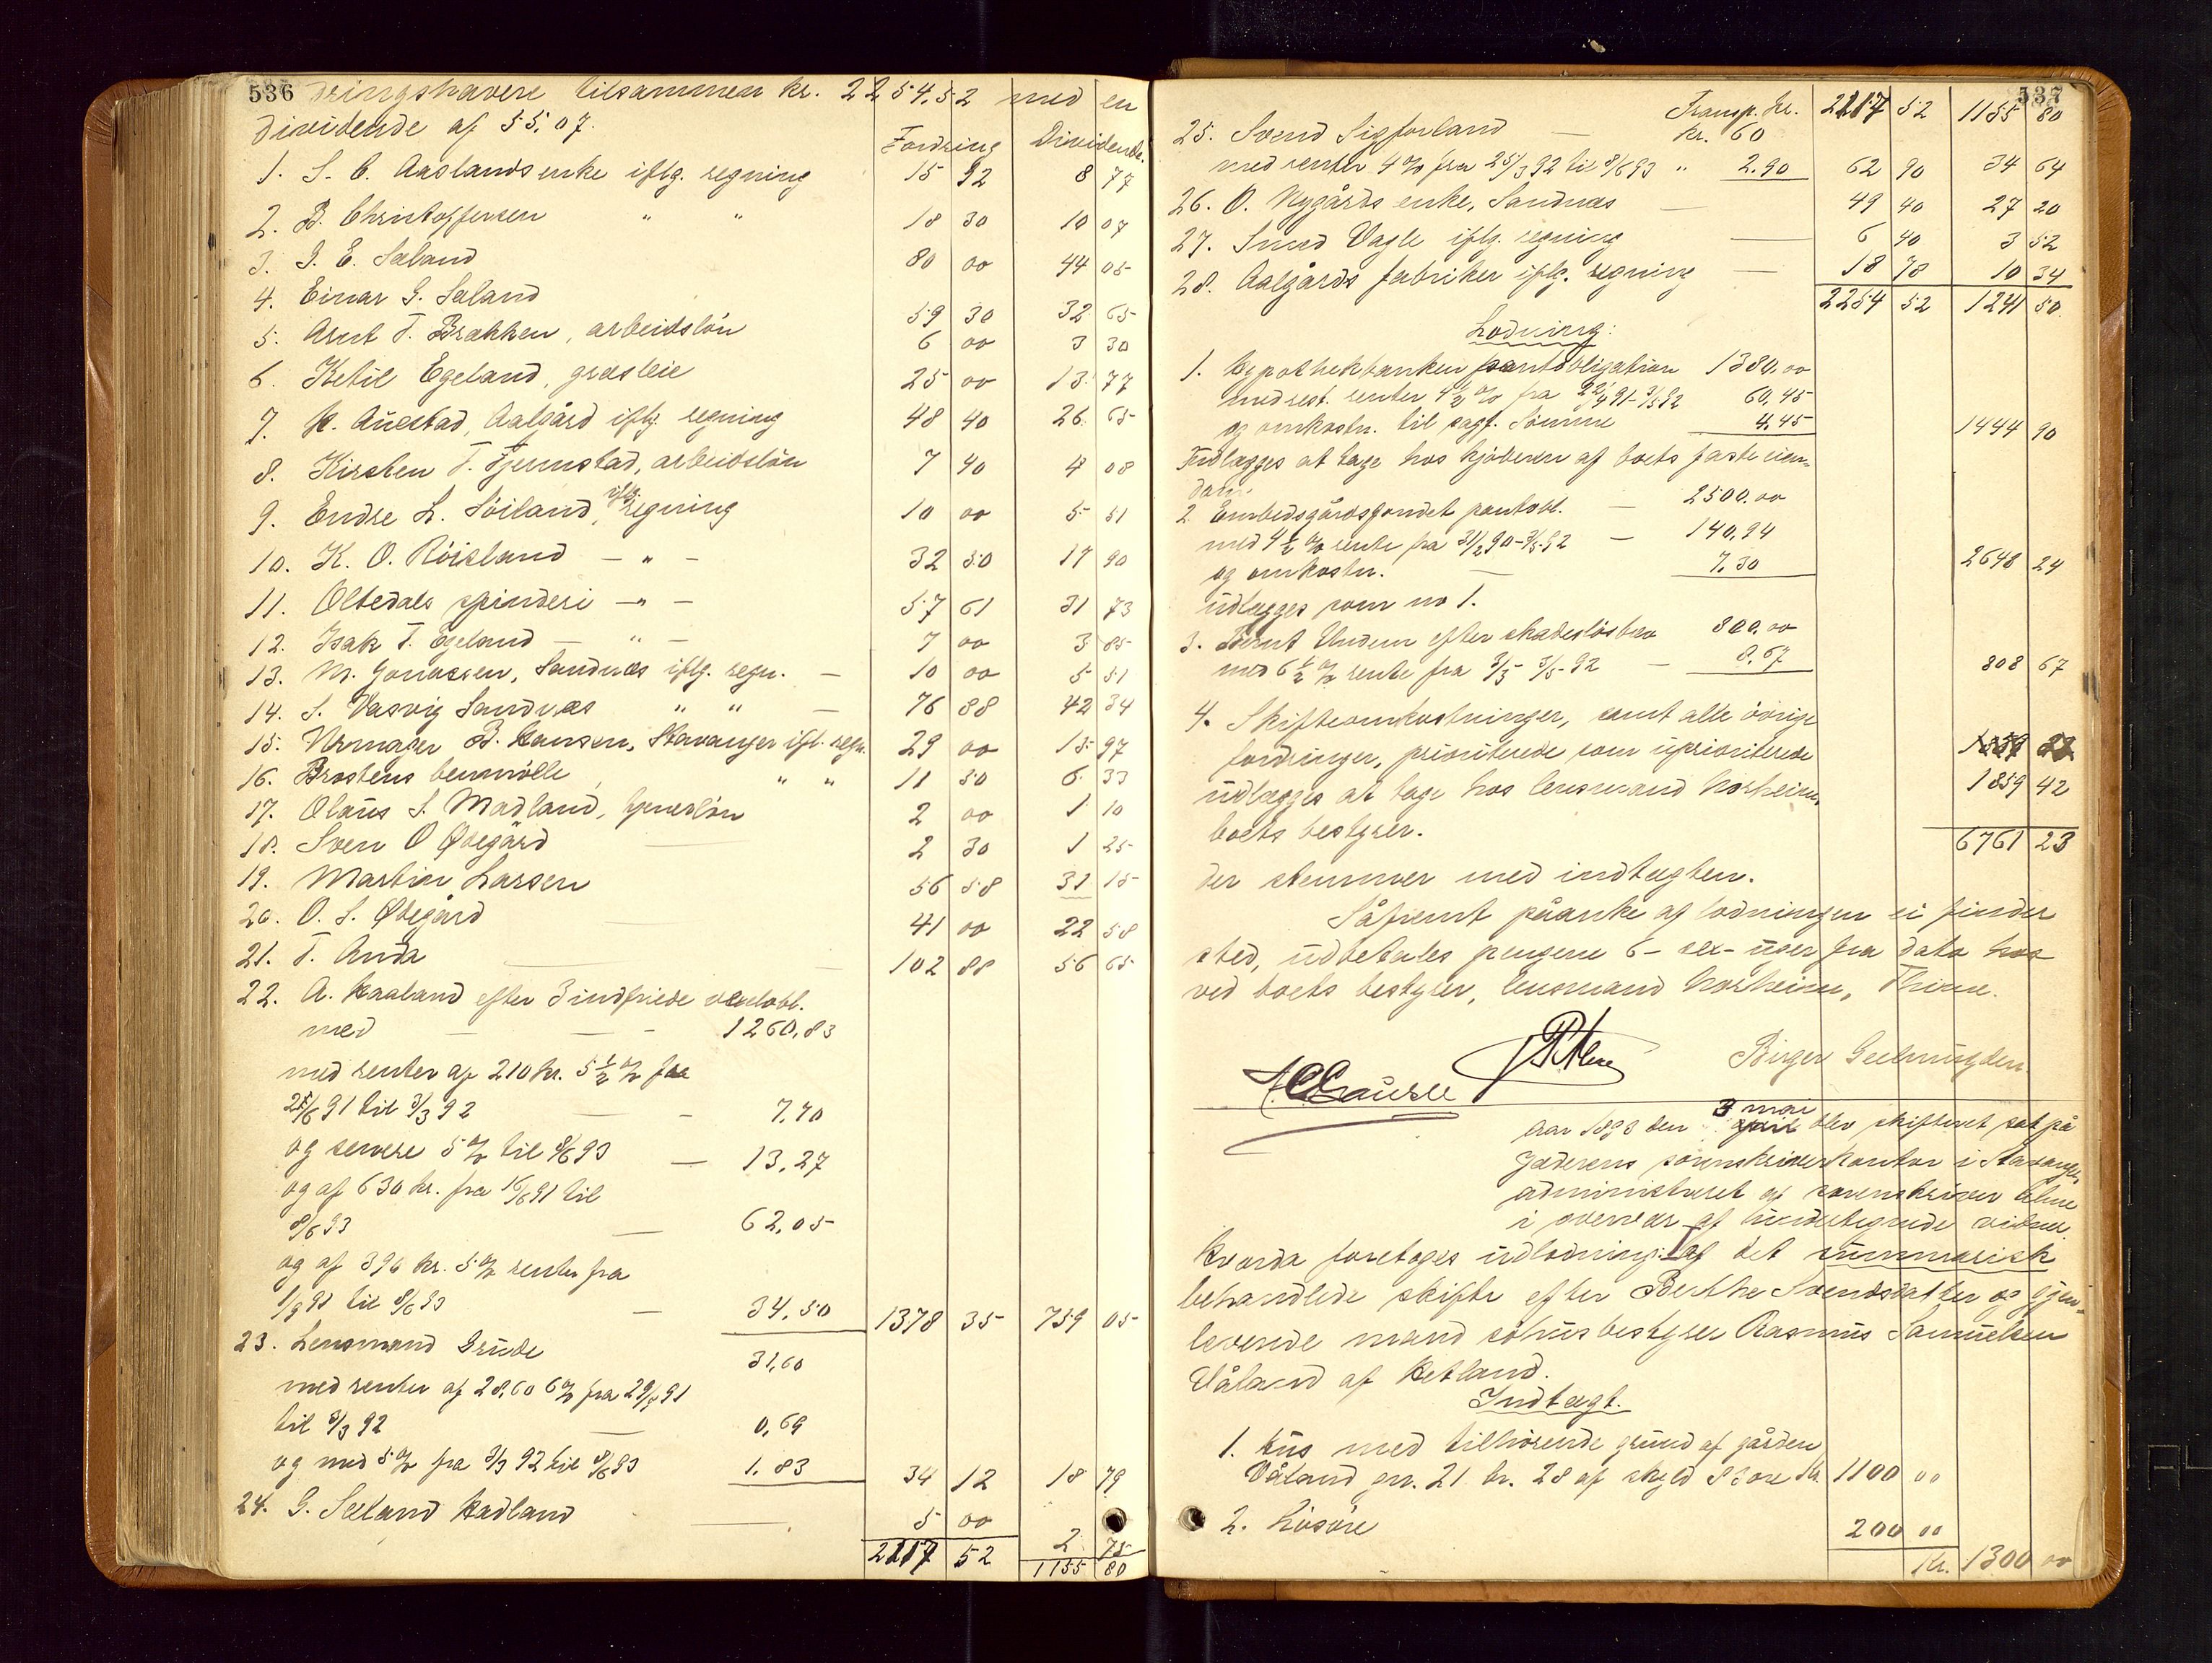 536 dringshavere tilsammen kr. 2254.52 med en
dividende af 55,07.
Fordring Dividende.
1. S. C. Aaslands enke iflg. regning 15 92 8 77
2. B. Christoffersen " " 18 30 10 07
3. J. E. Sæland 80 00 44 05
4. Einar G. Sæland 59 30 32 65
5. Arnt T. Brækken, arbeidsløn 6 00 3 30
6. Ketil Egeland, græsleie 25 00 13 77
7. K. Auestad, Aalgård iflg. regning 48 40 26 65
8. Kirsten T. Tjemstad, arbeidsløn 7 40 4 08
9. Endre L. Söiland, iflg. regning 10 00 5 51
10. K. O. Röisland - " - 32 50 17 90
11. Oltedals spinderi - " - 57 61 31 73
12. Isak T. Egeland - " - 7 00 3 85
13. M. Jonassen, Sandnæs iflg. regn. - 10 00 5 51
14. S. Vasvig Sandnæs " " - 76 88 42 34
15. Urmager B. Hansen, Stavanger ifl. regn. 29 00 15 97
16. Brostens benmölle " " 11 50 6 33
17. Olaus S. Madland, tjenesløn 2 00 1 10
18. Sven O Ødegård 2 30 1 25
19. Martin Larsen 56 58 31 15
20. O. S. Ødegård 41 00 22 58
21. T. Anda 102 88 56 65
22. A. Haaland efter 3 indfriede vexelobl.
med - - - 1260,83
med renter af 210 kr. 5 1/2 % fra
25/6 91 til 3/3 92 - - 7.70
og senere 5 % til 8/6 93 - 13,27
og af 630 kr. fra 16/6 91 til
8/6 93 - 62,05
og af 396 kr. 5 % renter fra
1/9 91 til 8/6 93 - 34,50 1378 35 759 05
23. Lensmand Grude 31,60
med renter af 28,60 6 % fra 29/9 91
til 3/3 92 - 0,69
og med 5 % fra 3/3 92 til 8/6 93 1.83 34 12 18 79
24. G. Sæland Hadland 5 00 2 75
2117 52 1155 80
537
Transp. kr. 2117 52 1155 80
25. Svend Sigforland - kr. 60
med renter 4 % fra 25/3 92 til 8/6 93 " 2.90 62 90 34 64
26. O. Nygårds enke, Sandnæs - 49 40 27 20
27. Smed Vagle iflg. regning - 6 40 3 52
28. Aalgårds fabriker iflg. regning - 18 78 10 34
2254 52 1241 50
Lodning:
1. Hypothekbanken pantobligation 1380,00
med rest. renter 4 1/2 % fra 22/4 91 - 3/5 92 60,45
og omkostn. til sagf. Sömme 4.45 1444 90
Udlægges at tage hos kjöberen af boets faste eien-
dom.
2. Embedsgårdsfondet pantobl. - 2500.00
med 4 1/2 % rente fra 31/2 90 - 3/5 92 - 140,94
og omkostn. - 7.30 2648 24
udlægges som no 1.
3. Bernt Undem efter skadeslösbrev 800,00
med 6 1/2 % rente fra 3/3 - 3/5 92 - 8.67 808 67
4. Skifteomkostninger, samt alle övrige
fordringer, prioriterede som uprioriterede
udlægges at tage hos lensmand Norheim, 1859 42
boets bestyrer. 6761 23
der stemmer med indtægten.
Såfremt påanke af lodningen ei finder
sted, udbetales pengene 6 - sex - uger fra dato hos
ved boets bestyrer, lensmand Norheim, Thime.
Birger Gulmyden
Aar 1893 den 3 mai blev skifteret sat på
Jæderens sorenskriverkontor i Stavanger,
administreret af sorenskriver
i overvær af undertegnede vidner.
Hvorda foretoges udlodning af det summarisk
behandlede skifte efter Berthe Svendsdatter og gjen-
levende mand Rasmus Samuelsen
Våland af Hetland.
Indtægt.
1. Hus med tilhörende grund af gården
Våland gnr. 21 br. 28 af skyld 8 öre kr. 1100 00
2. Lösöre 200 00
Kr. 1300 00